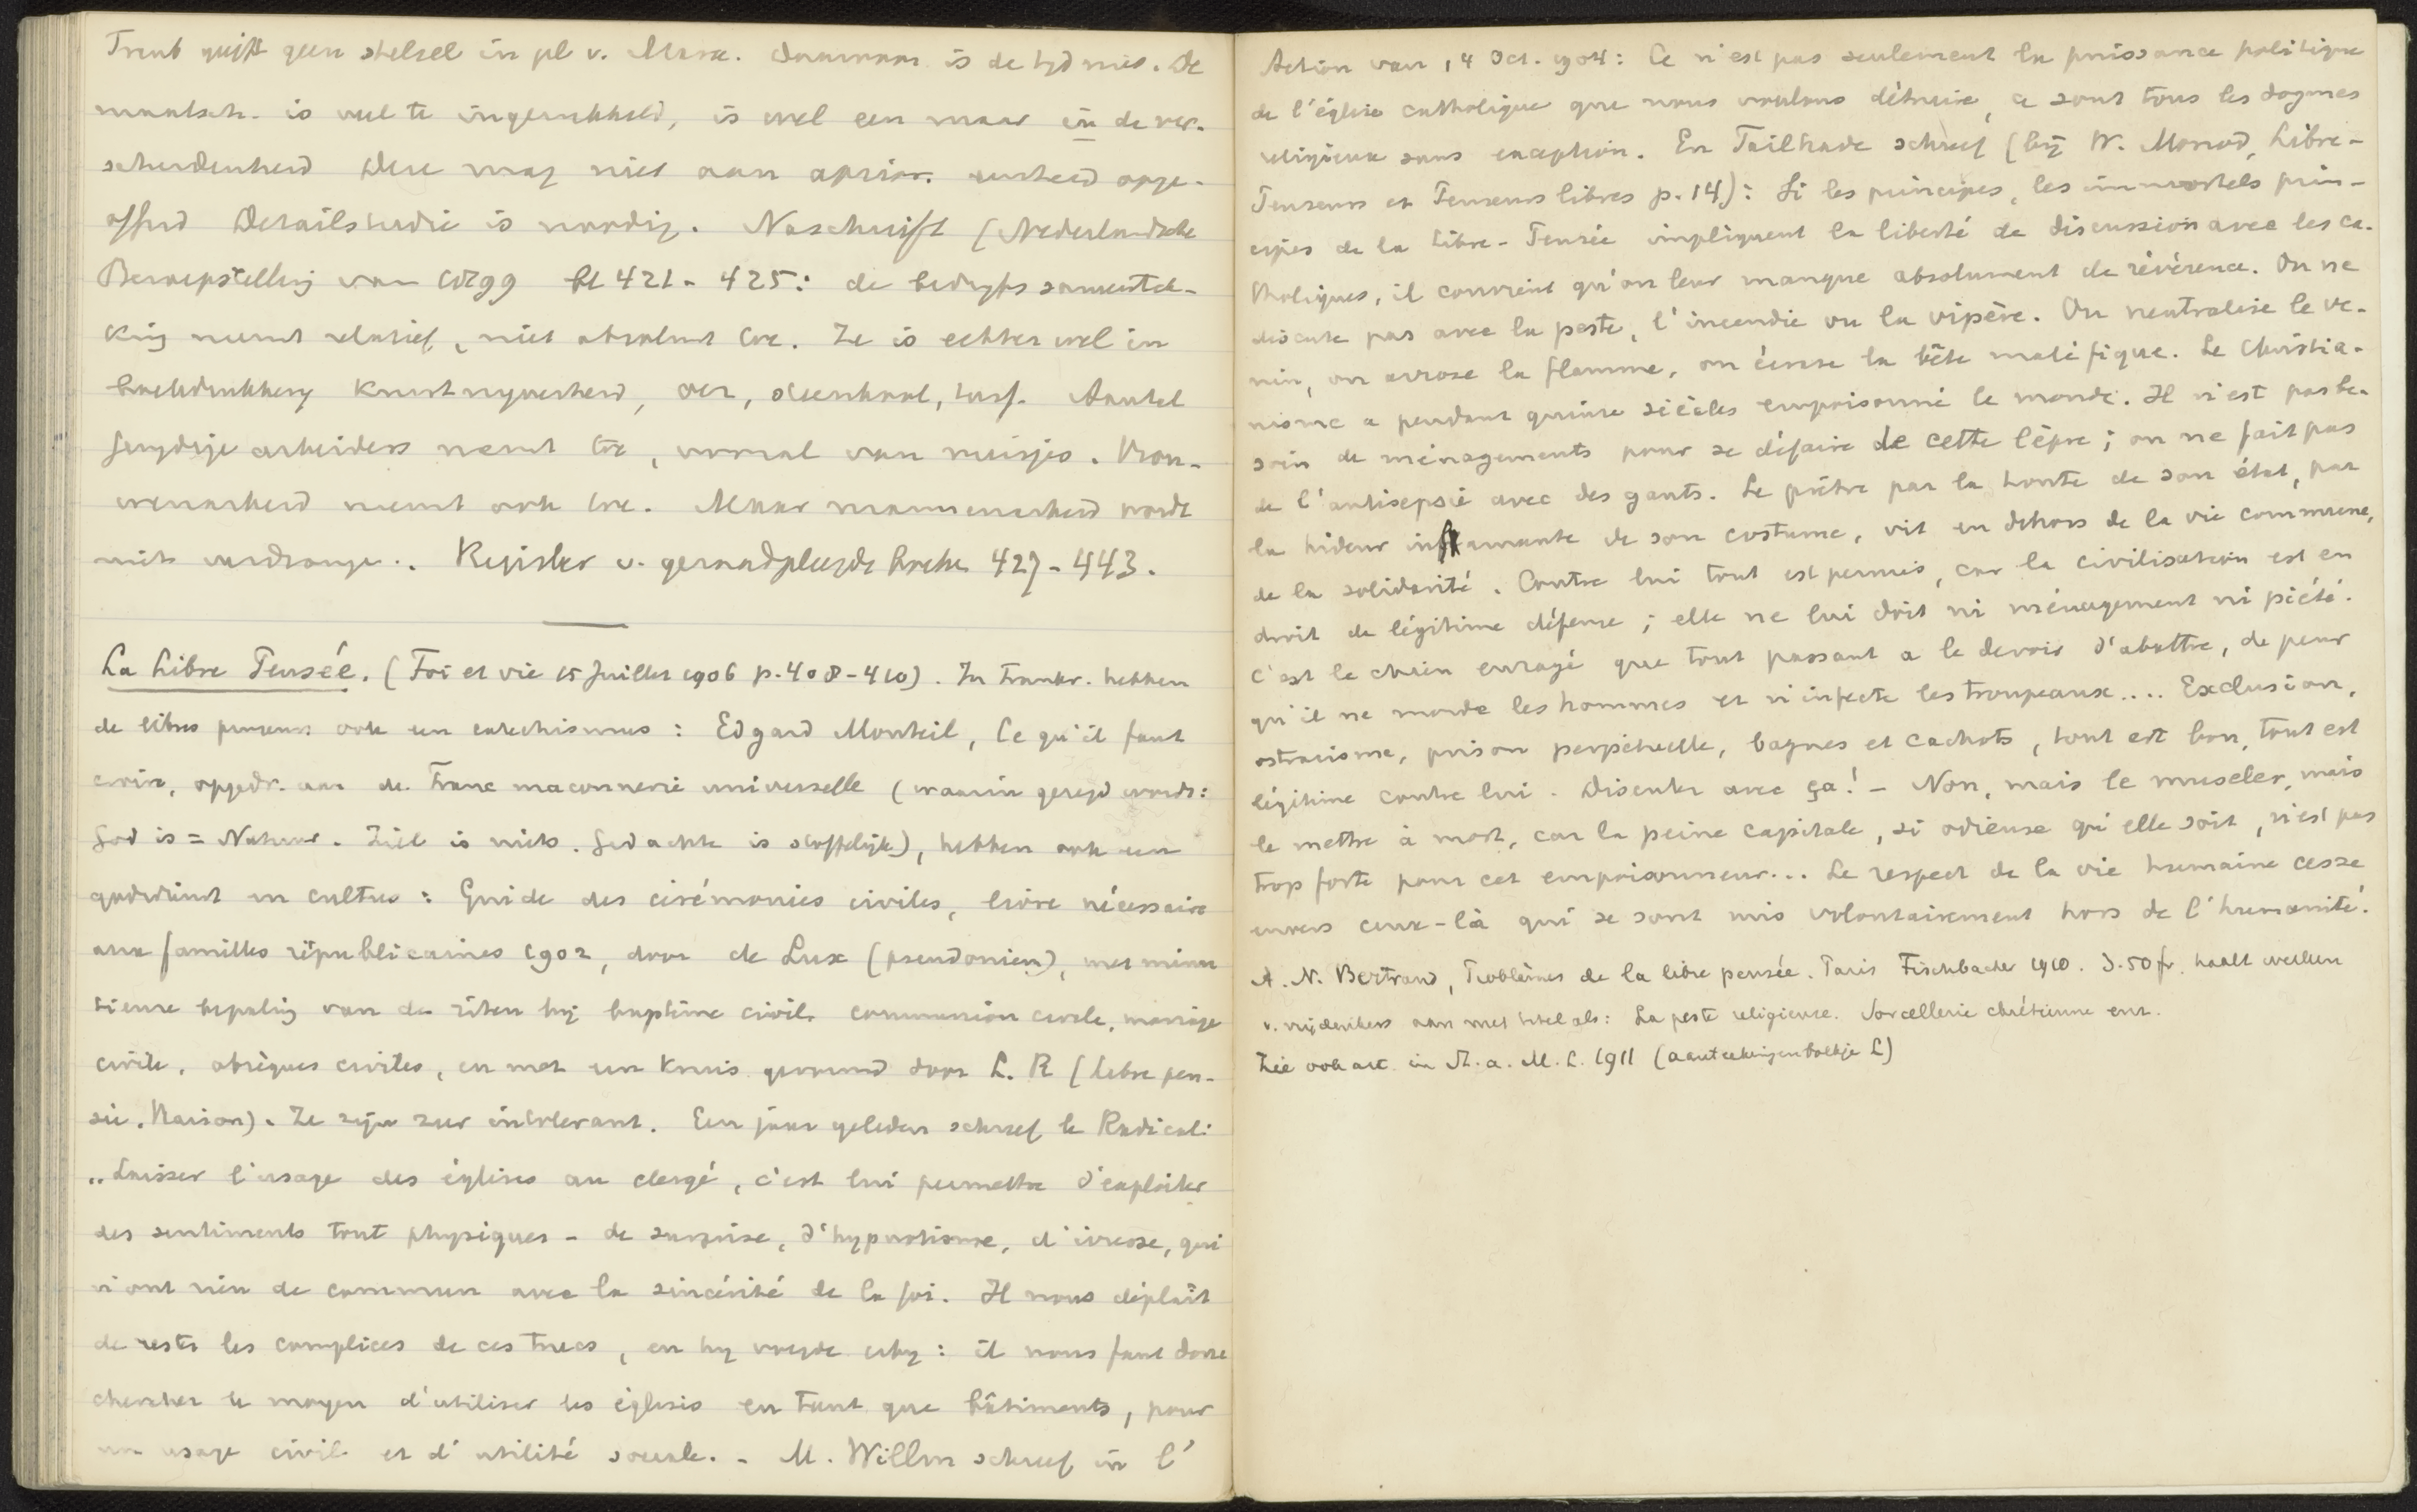 Treub geeft geen stelsel in pl v. Marx. Daarvoor is de tyd niet. De
maatsch. is veel te ingewikkeld, is wel een maar in de ver-
scheidenheid Deze mag niet aan aprior. eenheid opge-
offerd Detailstudie is noodig. Naschrift (Nederlandsche
Beroepstelling van 1899 bl 421 - 425: de bedryfs samentrek-
king neemt relatief, niet absoluut toe. Ze is echter wel in
boekdrukkery kunstnyverheid, oer, steenkool, turf. Aantal
jeugdige arbeiders neemt toe, vooral van meisjes. Vrou-
wenarbeid neemt ook toe. Maar mannenarbeid wordt
niet verdrongen. Register v. geraadpleegde boeken 427-443.
La Libre Pensée. (Foi et vie 15 Juillet 1906 p. 408-410). In Frankr. hebben
de libres penseurs ook een catechismus: Edgard Monteil, Ce qu'il faut
croire, opgedr. aan de Franc maconnerie universelle (waarin gezegd wordt:
God is = Natuur. Ziel is niets. Gedachte is stoffelijk), hebben ook een
godsdienst en cultus: Guide des cérémonies civiles, livre nécessaire
aux familles républicaines 1902, door de Lux (pseudoniem), met minu
tieuse bepaling van de riten bij baptême civil, communion civile, mariage
civile, obsèques civiles, en met een kruis gevormd door L. R (libre pen-
sée. Raison). Ze zijn zeer intolerant. Een jaar geleden schreef le Radical:
„Laisser l'usage des églises au clergé, c'est lui permettre d'exploiter
des sentiments tout physiques - de surprise, d'hypnotisme, d'ivresse, qui
n'ont rien de commun avec la sincérité de la foi. Il nous déplaît
de rester les complices de ces trucs, en hy voegde erby: il nous faut donc
chercher le moyen d'utiliser les églises en tant que bâtiments, pour
un usage civil et d'utilité sociale. - M. Willm schreef in l'
Action van 14 Oct. 1904: Ce n'est pas seulement la puissance politique
de l'église catholique que nous voulons détruire, ce sont tous les dogmes
religieux sans exception. En Tailhade schreef (bij W. Monod, Libre-
Penseurs et Penseurs libres p. 14): Si les principes, les immortels prin-
cipes de la Libre-Pensée impliquent la liberté de discussion avec les ca-
tholiques, il convient qu'on leur manque absolument de révérence. On ne
discute pas avec la peste, l'incendie ou la vipère. On neutralise le ve-
nin, on arrose la flamme, on écrase la bête maléfique. Le Christia-
nisme a pendant quinze siècles empoisonné le monde. Il n'est pas be-
soin de ménagements pour se défaire de cette lèpre; on ne fait pas
de l'antisepsie avec des gants. Le prêtre par la honte de son état, par
la hideur infamante de son costume, vit en dehors de la vie commune,
de la solidarité. Contre lui tout est permis, car la civilisation est en
droit de légitime défense; elle ne lui doit ni ménagement ni piété.
C'est le chien enragé que tout passant a le devoir d'abattre, de peur
qu'il ne morde les hommes et n'infecte les troupeaux.... Exclusion,
ostracisme, prison perpétuelle, bagnes et cachots, tout est bon, tout est
légitime contre lui. Discuter avec ça! - Non, mais le museler, mais
le mettre à mort, car la peine capitale, si odieuse qu'elle soit, n'est pas
trop forte pour cet empoisonneur... Le respect de la vie humaine cesse
envers ceux-là qui se sont mis volontairement hors de l'humanité.
A. N. Bertrand, Problèmes de la libre pensée. Paris Fischbacher 1910. 3.50 fr. haalt werken
v. vrijdenkers aan met titel als: La peste religieuse. Sorcellerie chrétienne enz.
Zie ook art. in St. a. M. L. 1911 (aanteekeningenboekje L)